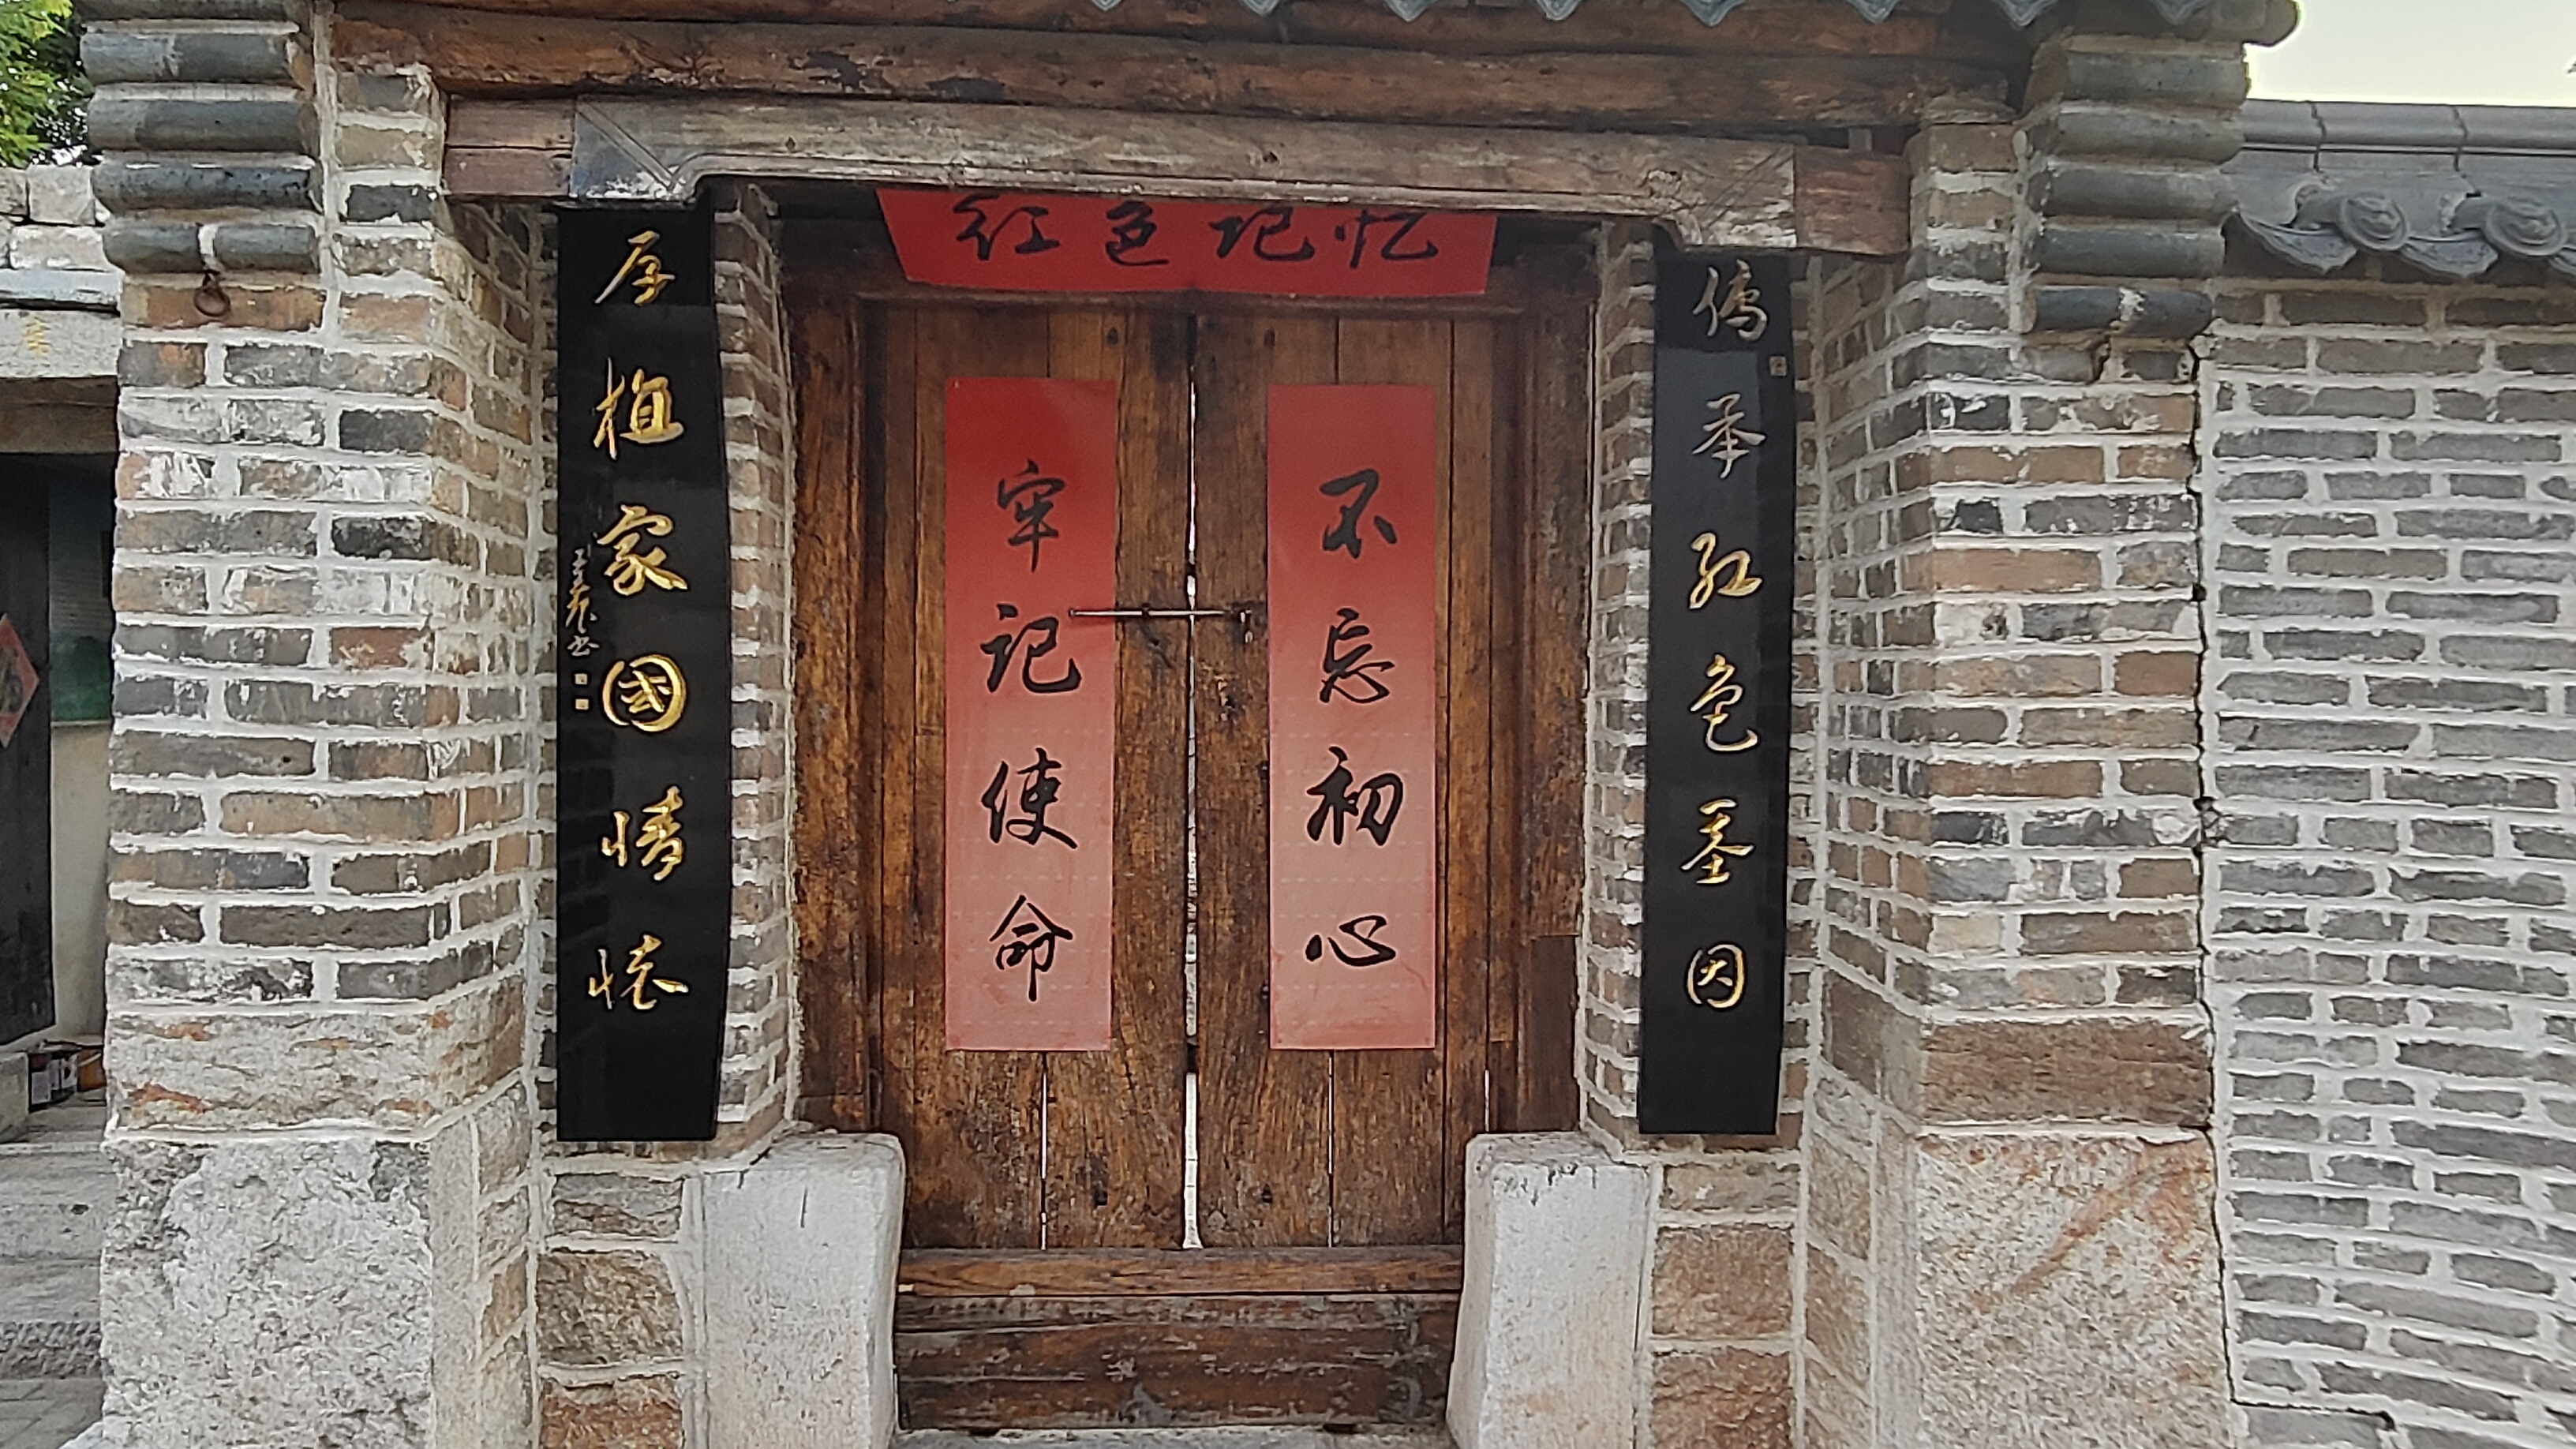 红色记忆
傳承红色基因
厚植家國情怀
不忘初心
牢记使命